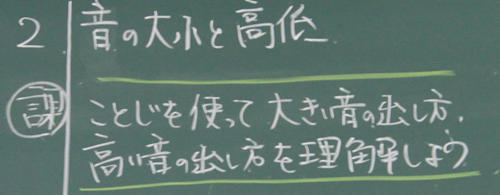 2 音の大小と高低
課 ことじを使って大きい音の出し方、
高い音の出し方を理解しよう